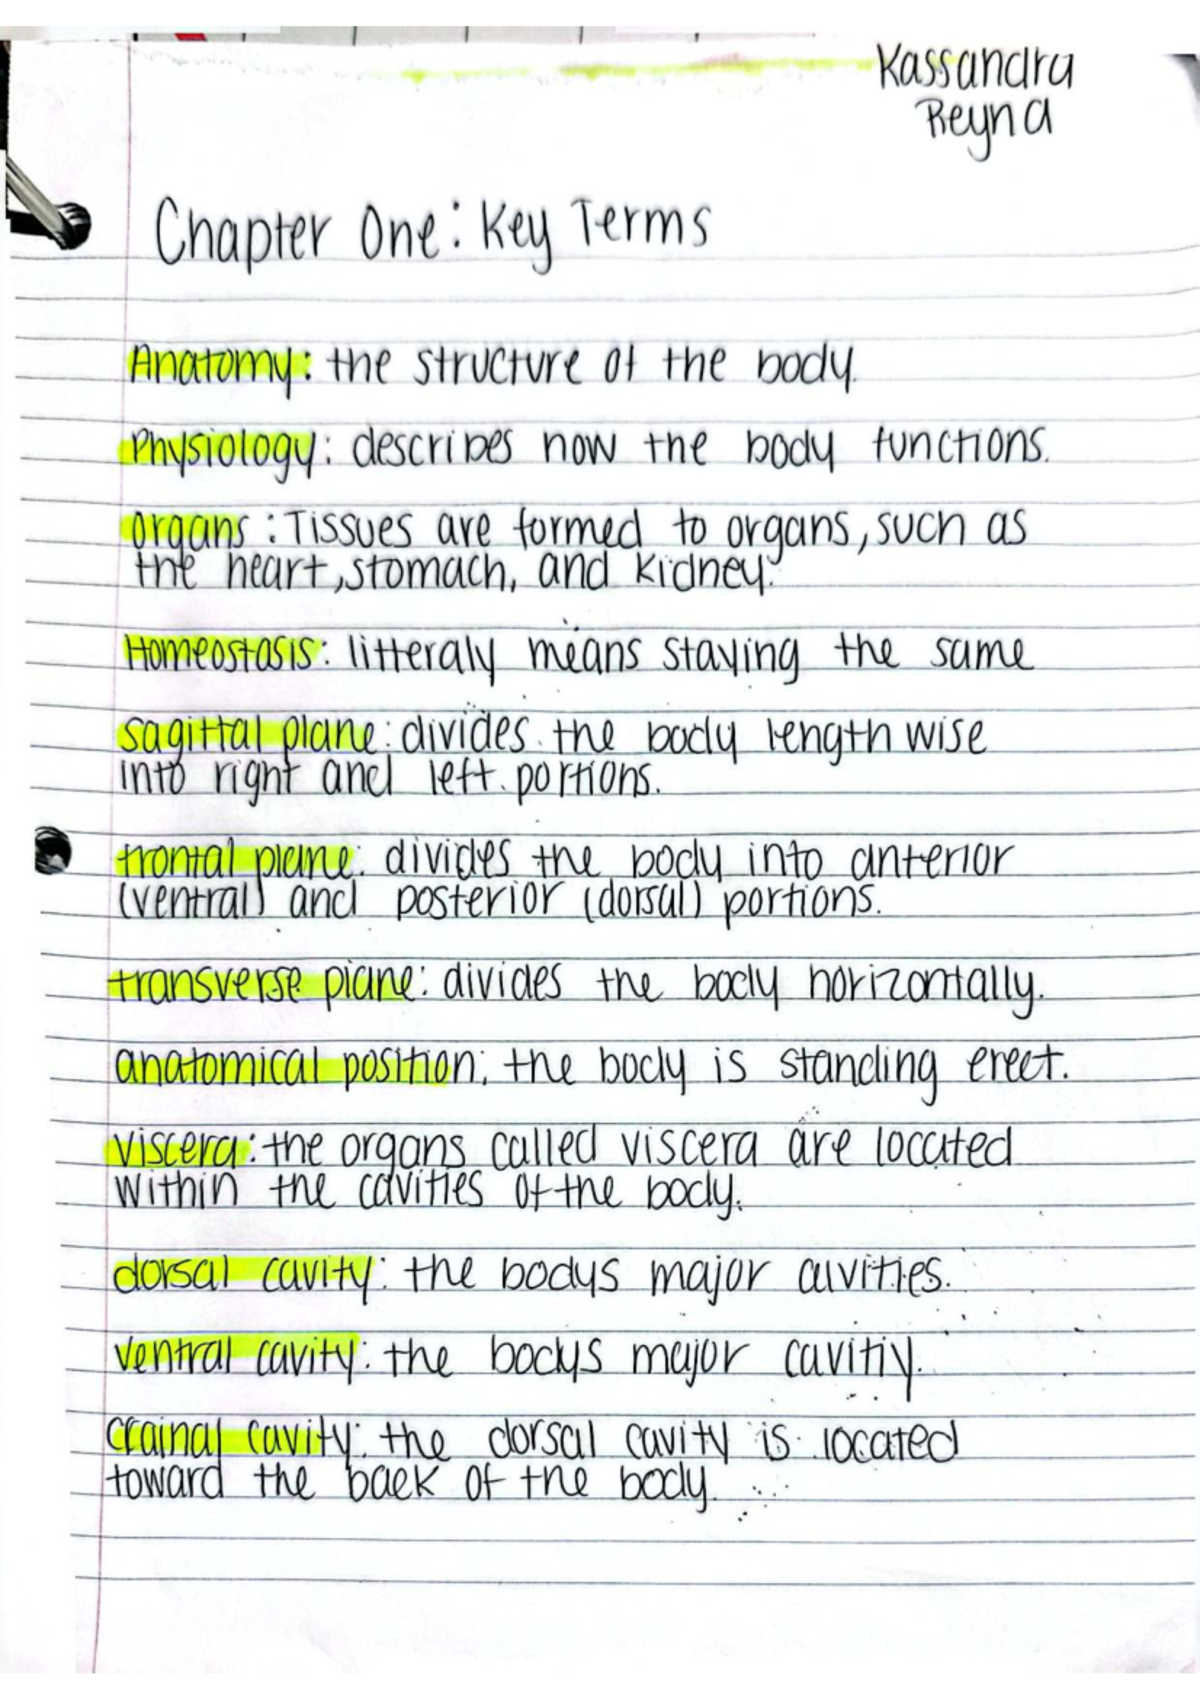 Kassandra
Reyna
Chapter One: Key Terms
Anatomy: the structure of the body.
Physiology: describes how the body functions.
organs: Tissues are formed to organs, such as
the heart, stomach, and kidney.
Homeostasis: litteraly means staying the same
sagittal plane: divides the body length wise
into right and left portions.
frontal plane: divides the body into anterior
(ventral) and posterior (dorsal) portions.
transverse plane: divides the body horizontally.
anatomical position: the body is standing erect.
viscera: the organs called viscera are located
within the cavities of the body.
dorsal cavity: the bodys major cavities.
ventral cavity: the bodys major cavitiy.
crainal cavity: the dorsal cavity is located
toward the back of the body.